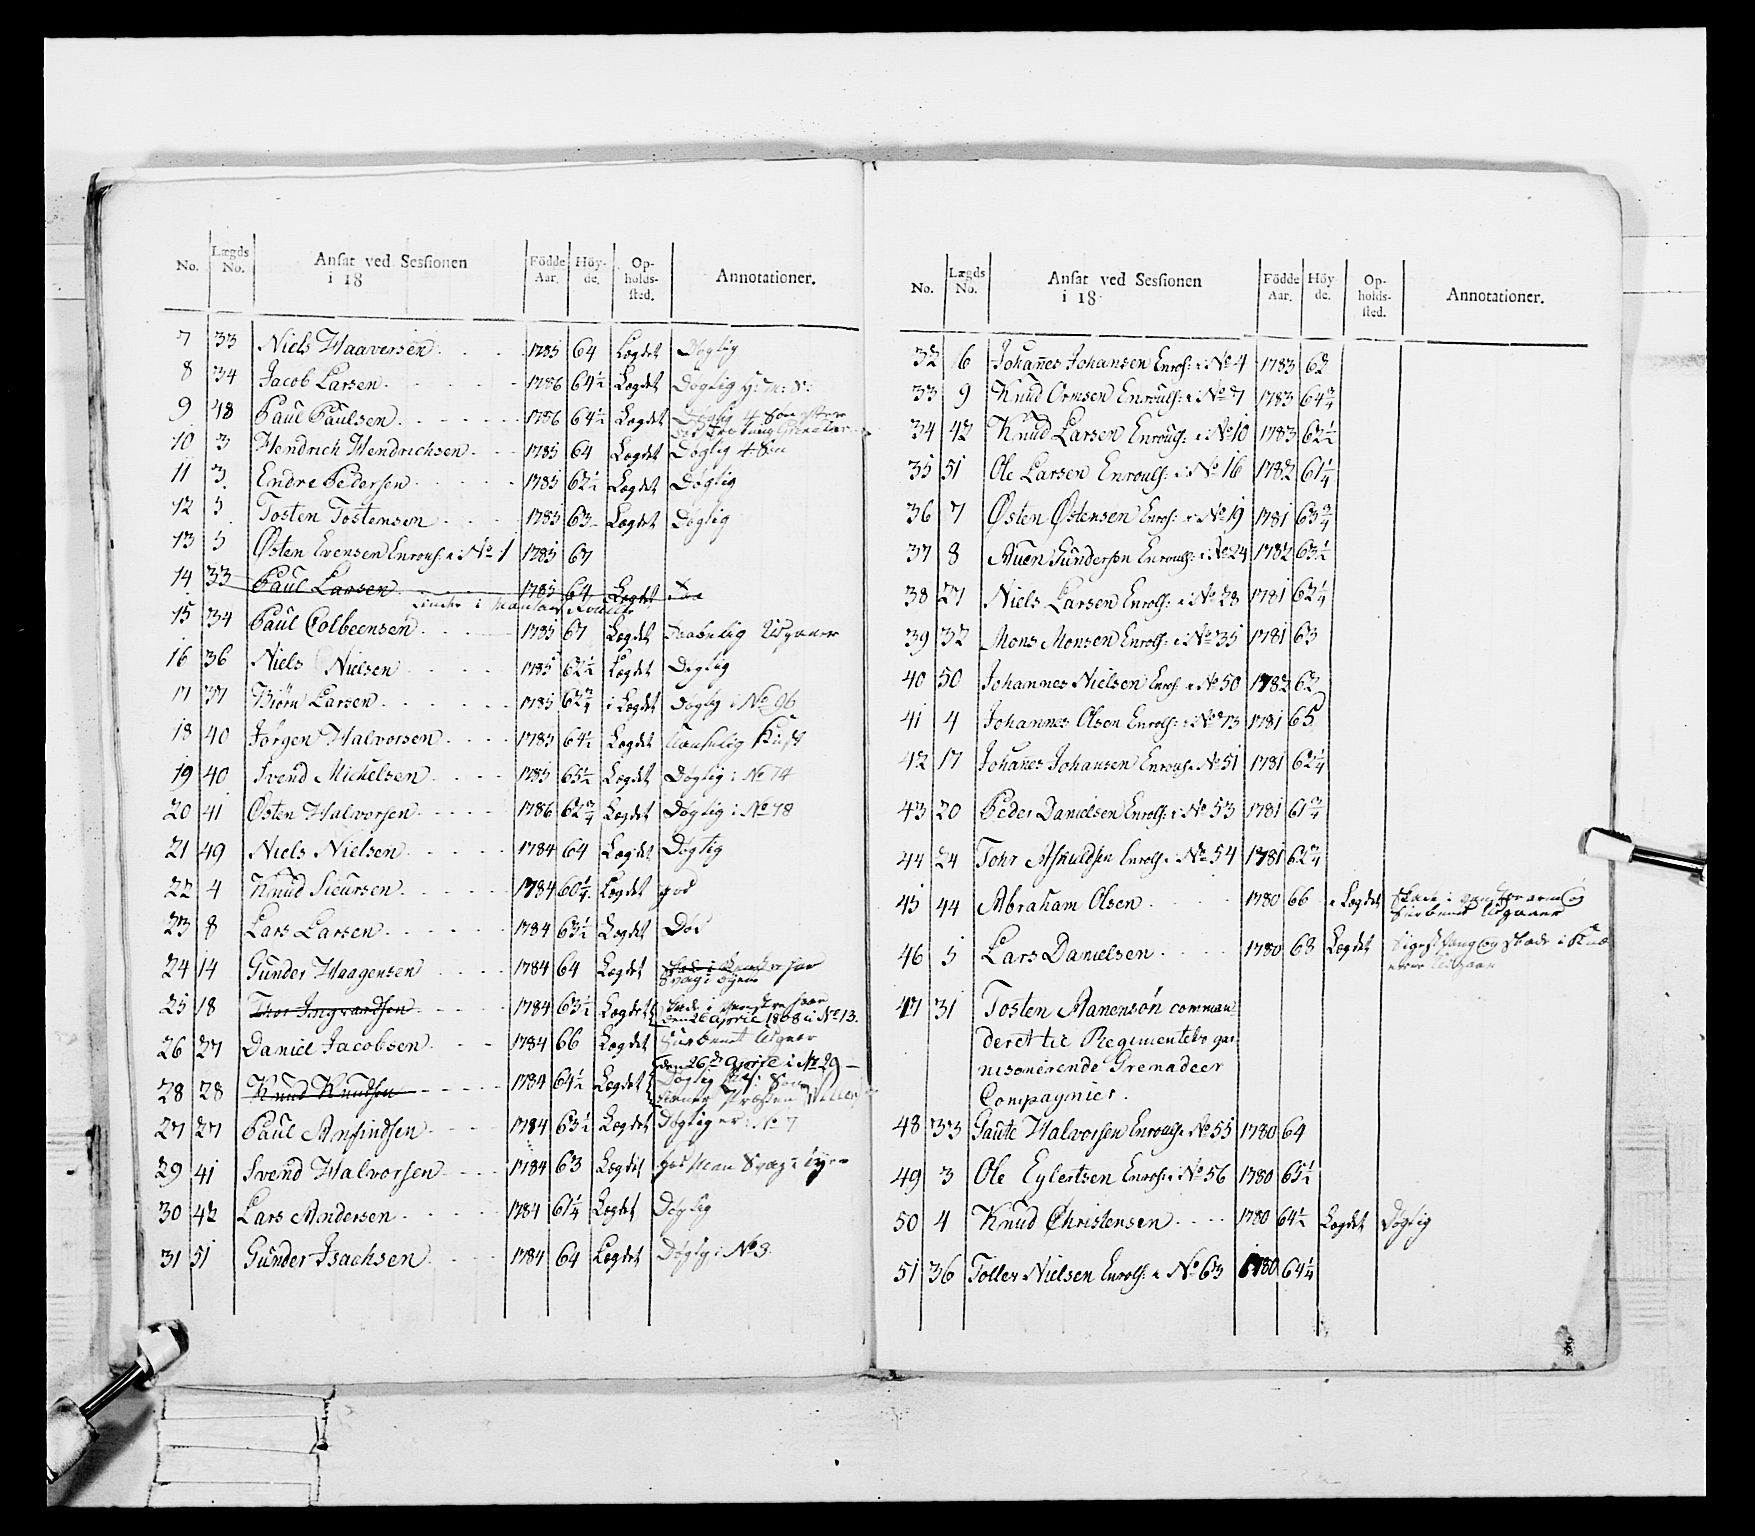 No. | Lægds No. | Ansat ved Sessionen i 18 | Födde Aar. | Höyde. | Opholdssted. | Annotationer.
7 33 Niels Haaversen 1785 64 Lægdet Dygtig
8 34 Jacob Larsen 1786 64½ Lægdet Dygtig
9 48 Paul Paulsen 1786 64½ Lægdet Dygtig
10 3 Hendrich Hendrichsen 1785 64 Lægdet Dygtig
11 3 Endre Pedersen 1785 62½ Lægdet Dygtig
12 5 Tosten Tostensen 1785 63 Lægdet Dygtig
13 5 Østen Evensen Enroul: i No 1 1785 67
14 33 Paul Larsen 1785 64 Lægdet
15 34 Paul Colbeensen 1785 67 Lægdet Udgaaer
16 36 Niels Nielsen 1785 62½ Lægdet Dygtig
17 37 Biørn Larsen 1785 62¾ i Lægdet Dygtig i No 96
18 40 Jørgen Halvorsen 1785 64½ Lægdet
19 40 Svend Michelsen 1785 65½ Lægdet Dygtig i No 74
20 41 Østen Halvorsen 1786 62¾ Lægdet Dygtig i No 78
21 49 Niels Nielsen 1784 64 Lægdet Dygtig
22 4 Knud Sieursen 1784 60¼ Lægdet god
23 8 Lars Larsen 1784 63½ Lægdet Død
24 14 Gunder Haagensen 1784 64 Lægdet
Svag i Øyne
25 18 Thor Ingvardsen 1784 63½ Lægdet
den 26 April 1808 i No 13.
26 27 Daniel Jacobsen 1784 66 Lægdet
den 26de April i No 29
28 28 Knud Knudsen 1784 64½ Lægdet Dygtig
27 27 Paul Anfindsen 1784 63½ Lægdet Dygtig er i No 7
29 41 Svend Halvorsen 1784 63 Lægdet
30 42 Lars Andersen 1784 61¼ Lægdet Dygtig
31 51 Gunder Isachsen 1784 64 Lægdet Dygtig i No 3.
No. | Lægds No. | Ansat ved Sessionen i 18 | Födde Aar. | Höyde. | Opholdssted. | Annotationer.
32 6 Johan̄es Johansen Enrol: i No 4 1783 62
33 9 Knud Ormsen Enroul: i No 7 1783 64¾
34 42 Knud Larsen Enroul: i No 10 1783 62½
35 51 Ole Larsen Enroul: i No 16 1782 61¼
36 7 Østen Østensen Enrol: i No 19 1781 63¾
37 8 Auen Gunderson Enroul: i No 24 1782 63½
38 27 Niels Larsen Enrol: i No 28 1781 62¼
39 32 Mons Monsen Enrol: i No 35 1781 63
40 50 Johannes Nielsen Enrol: i No 50 1782 62
41 4 Johannes Olsen Enrol: i No 73 1781 65
42 17 Johan̄es Johansen Enroul i No 51 1781 62¼
43 20 Peder Danielsen Enrol: i No 53 1781 61¾
44 24 Tohr Aslculdsen Enrol: i No 54 1781 62¾
45 44 Abraham Olsen 1780 66 i Lægdet
Udgaaer
46 5 Lars Danielsen 1780 68 Lægdet
Udgaar
47 31 Tosten Aanensøn comman
deret til Regimentets gar
nisonerende Grenadeer
Compagnier.
48 33 Gaute Halvorsen Enroul i No 55 1780 64
49 3 Ole Eylertsen Enrol: i No 56 1780 65½
50 4 Knud Christensen 1780 64½ Lægdet Dygtig
51 36 Toller Nielsen Enrol: i No 63 1780 64¼